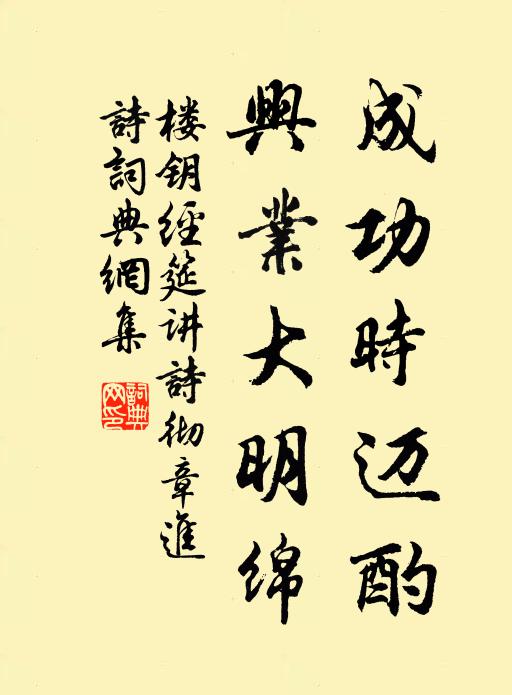 成功時迈酌
興業大明綿
楼钥經筵讲詩彻章進
詩詞典網集
詞典網印